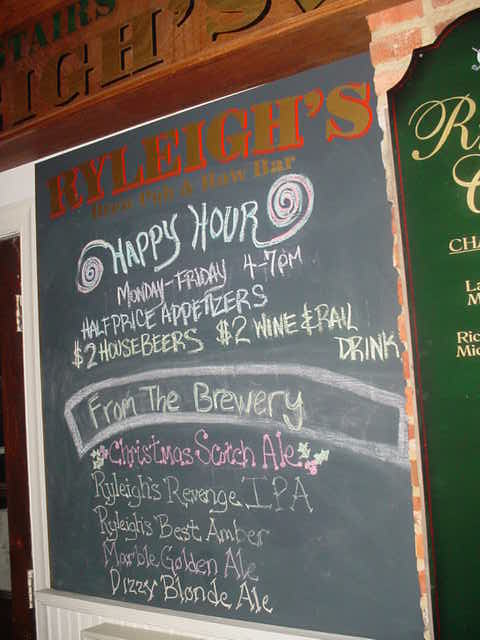 STAIRS
RYLEIGH'S
Brew Pub & Raw Bar
HAPPY HOUR
MONDAY-FRIDAY 4-7pm
HALF PRICE APPETIZERS
$2 HOUSE BEERS $2 WINE & RAIL
DRINK
From The Brewery
Christmas Scotch Ale
Ryleigh's Revenge IPA
Ryleigh's Best Amber
Marble Golden Ale
Dizzy Blonde Ale